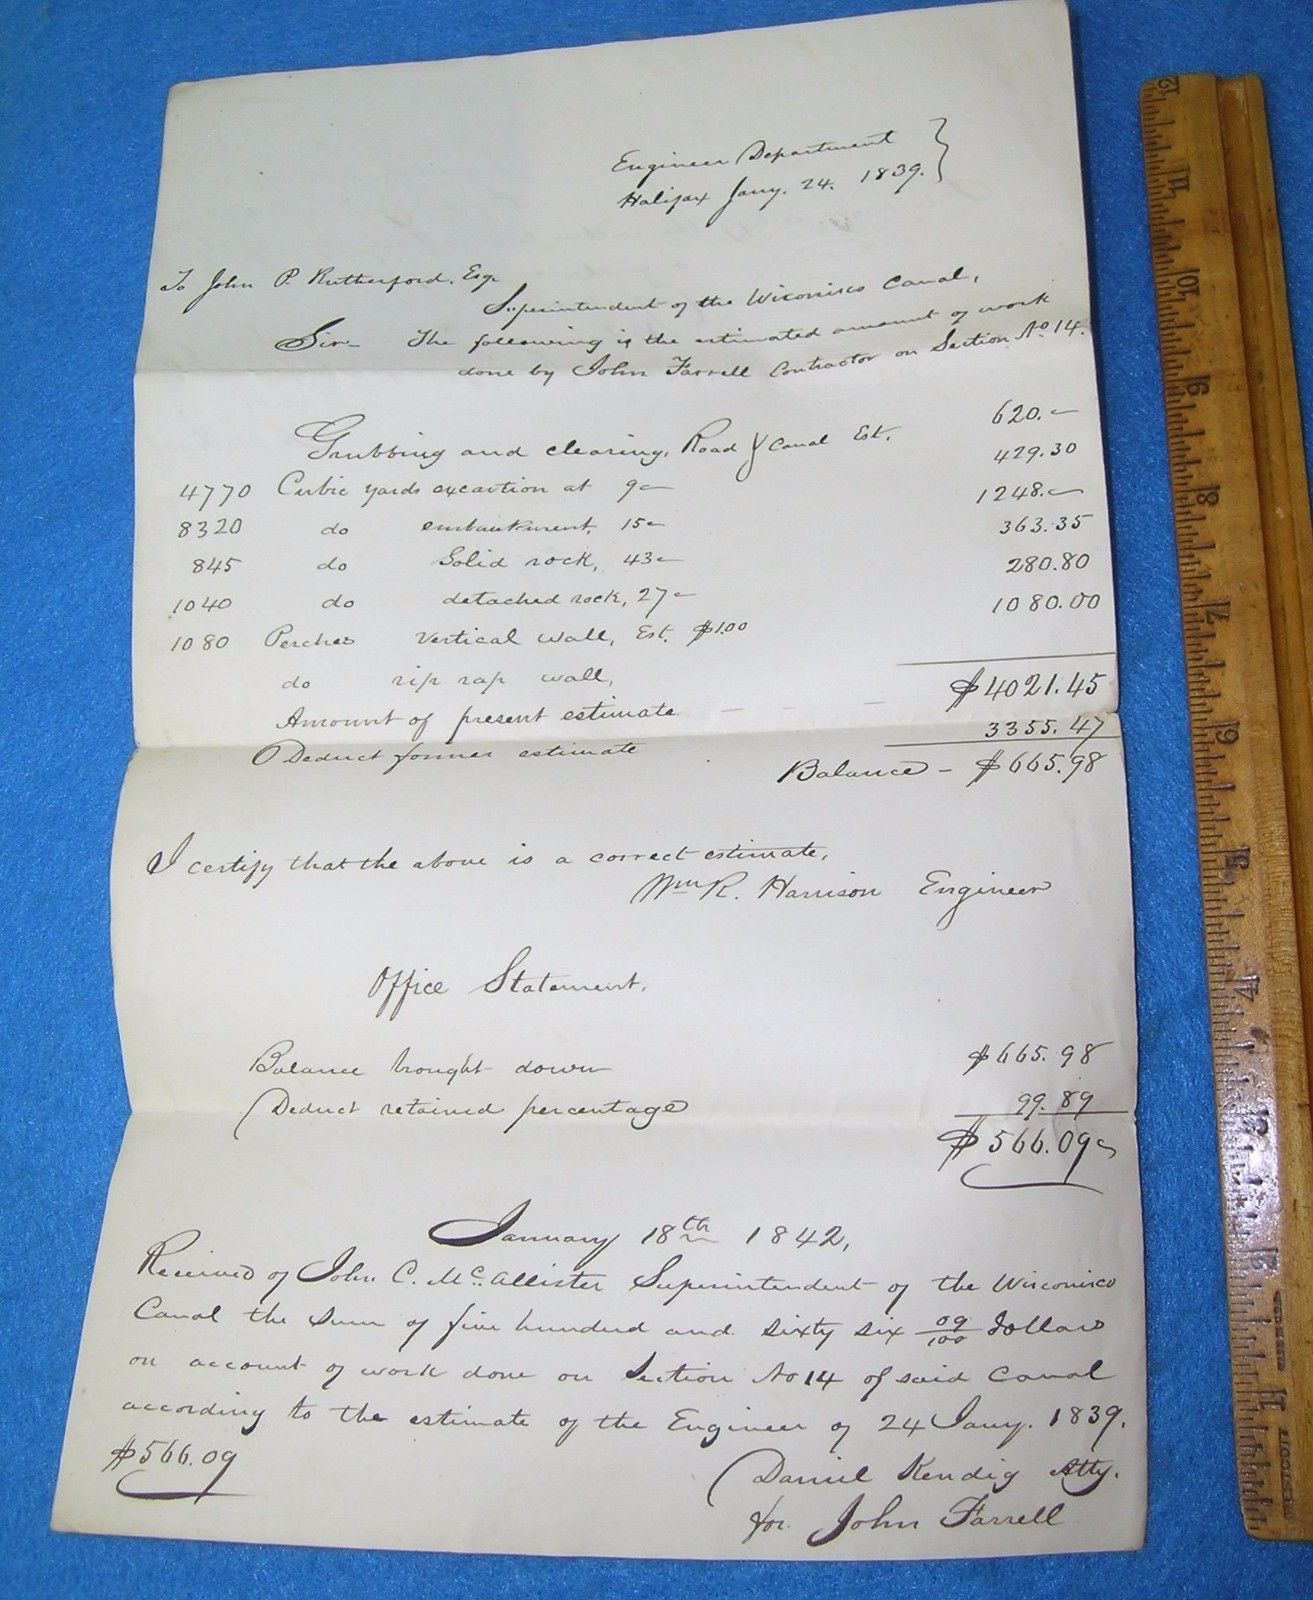 Engineer Department
Halifax Jany. 24. 1839.
To John P. Rutherford. Esq.
Superintendent of the Wiconisco Canal,
Sir— The following is the estimated amount of work
done by John Farrell Contractor on Section No 14.
Grubbing and clearing, Road & Canal Est. 620.—
4770 Cubic yards excavtion at 9c— 429.30
8320 do embankment, 15c 1248.—
845 do Solid rock, 43c 363.35
1040 do detached rock, 27c 280.80
1080 Perches Vertical wall, Est. $1.00 1080.00
do rip rap wall,
Amount of present estimate — — — $4021.45
Deduct former estimate 3355.47
Balance — $665.98
I certify that the above is a correct estimate,
Wm R. Harrison Engineer
Office Statement.
Balance brought down $665.98
Deduct retained percentage 99.89
$566.09
January 18th 1842,
Received of John C. McAllister Superintendent of the Wiconisco
Canal the sum of five hundred and sixty six 09/100 dollars
on account of work done on Section No 14 of said Canal
according to the estimate of the Engineer of 24 Jany. 1839.
$566.09
Daniel Kendig Atty.
for John Farrell
12
11
10
9
8
7
6
5
4
3
2
1